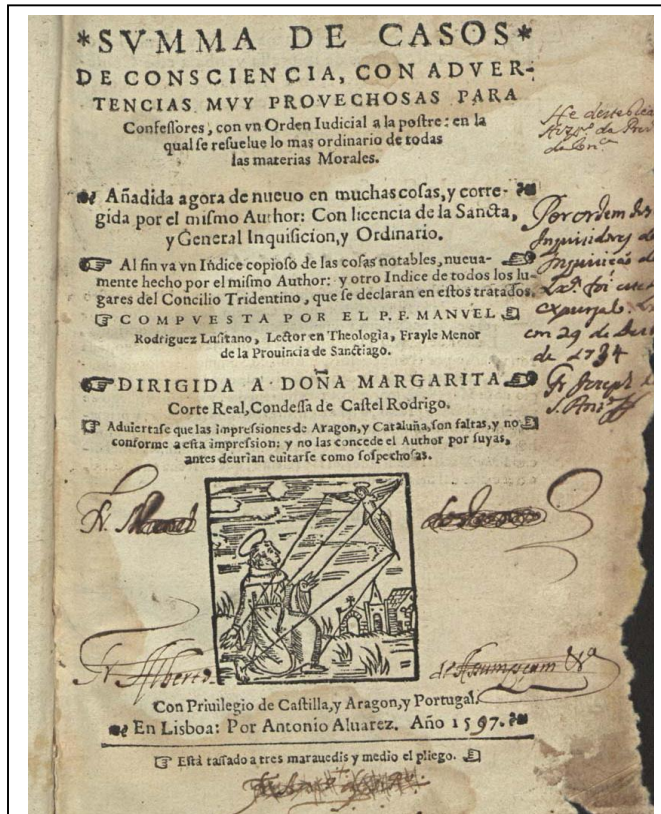 *SVMMA DE CASOS*
DE CONSCIENCIA, CON ADVER-
TENCIAS MVY PROVECHOSAS PARA
Confeſſores, con vn Orden Iudicial a la poſtre: en la
qual ſe reſuelue lo mas ordinario de todas
las materias Morales.
Añadida agora de nueuo en muchas coſas, y corre-
gida por el miſmo Author: Con licencia de la Sancta,
y General Inquiſicion, y Ordinario.
Al fin va vn Indice copioſo de las coſas notables, nueua-
mente hecho por el miſmo Author: y otro Indice de todos los lu-
gares del Concilio Tridentino, que ſe declaran en eſtos tratados.
COMPVESTA POR EL P. F. MANVEL
Rodriguez Luſitano, Lector en Theologia, Frayle Menor
de la Prouincia de Sanctiago.
DIRIGIDA A DOÑA MARGARITA
Corte Real, Condeſſa de Caſtel Rodrigo.
Aduiertaſe que las impreſſiones de Aragon, y Cataluña, ſon faltas, y no
conforme a eſta impreſsion: y no las concede el Author por ſuyas,
antes deurian euitarſe como ſoſpechoſas.
Con Priuilegio de Caſtilla, y Aragon, y Portugal.
En Lisboa: Por Antonio Aluarez. Año 1597.
Eſtà taſſado a tres marauedis y medio el pliego.
Por ordem dos
Inquisidores
Inquisição
foi
expurgado
em 29 de
de 1734
Fr. Joseph
Fr. Alberto de Assumpçam